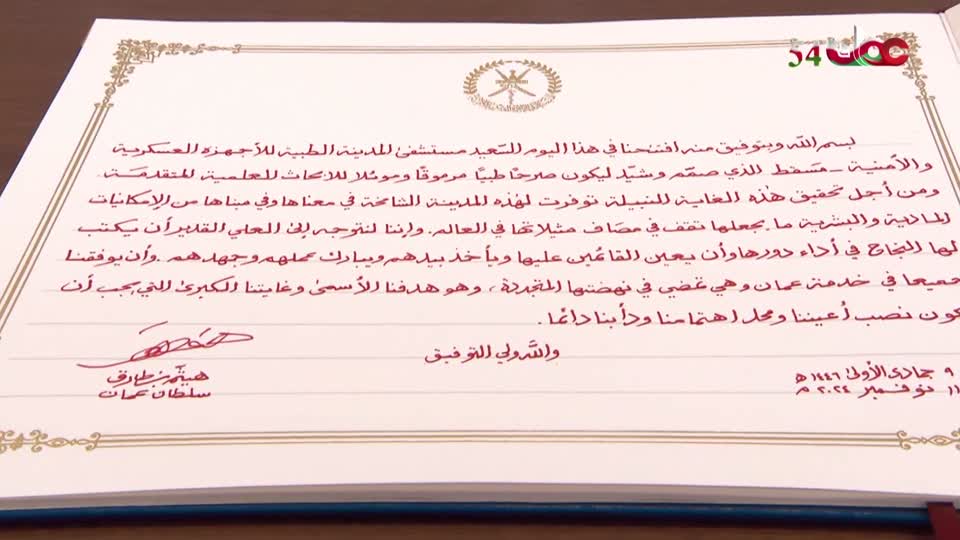 عمان 54
بسم الله وبتوفيق منه افتتحنا في هذا اليوم السعيد مستشفى المدينة الطبية للأجهزة العسكرية
والأمنية - مسقط الذي صمّم وشيّد ليكون صرحًا طبيًا مرموقًا وموئلا للابحاث العلمية المتقدمة.
ومن أجل تحقيق هذه الغاية النبيلة توفرت لهذه المدينة الشامخة في معناها وفي مبناها من الإمكانيات
المادية والبشرية ما يجعلها تقف في مصاف مثيلاتها في العالم. وإننا لنتوجه إلى العلي القدير أن يكتب
لها النجاح في أداء دورها وأن يعين القائمين عليها ويأخذ بيدهم ويبارك عملهم وجهدهم. وأن يوفقنا
جميعا في خدمة عمان وهي تمضي في نهضتها المتجددة، وهو هدفنا الأسمى وغايتنا الكبرى التي يجب أن
تكون نصب أعيننا ومحل اهتمامنا ودأبنا دائما.
والله ولي التوفيق
٩ جمادى الأولى ١٤٤٦ هـ
١١ نوفمبر ٢٠٢٤ م
هيثم بن طارق
سلطان عمان